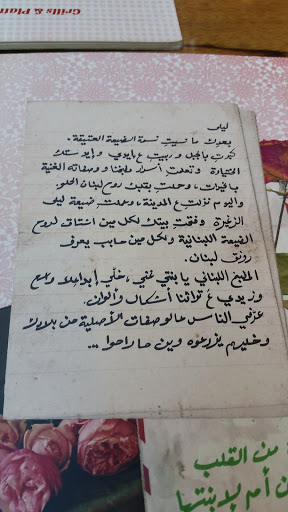 Grills & Platt
ليلى
بعدك ما نسيتِ نسمة الضيعة العتيقة.
كبرتِ بالجبل وربيتِ ع إيدي وإيد ستك
الختيارة وتعلمت أسرار طبخنا ووصفاته الغنية
بالخيرات، وحملتِ بقلبك روح لبنان الحلو.
واليوم نزلتِ ع المدينة، وعملت ضيعة ليلى
الزغيرة وفتحتِ بيتك لكل مين اشتاق لروح
الضيعة اللبنانية ولكل مين حابب يعرف
رونق لبنان.
المطبخ اللبناني يا بنتي غني، خلّي إيدك
وزيدي ع تراثنا أشكال وألوان.
عزمي الناس عالوصفات الأصلية من بلادك
وخليهم يزوروه وين ما راحوا...
من القلب
من أم لابنتها